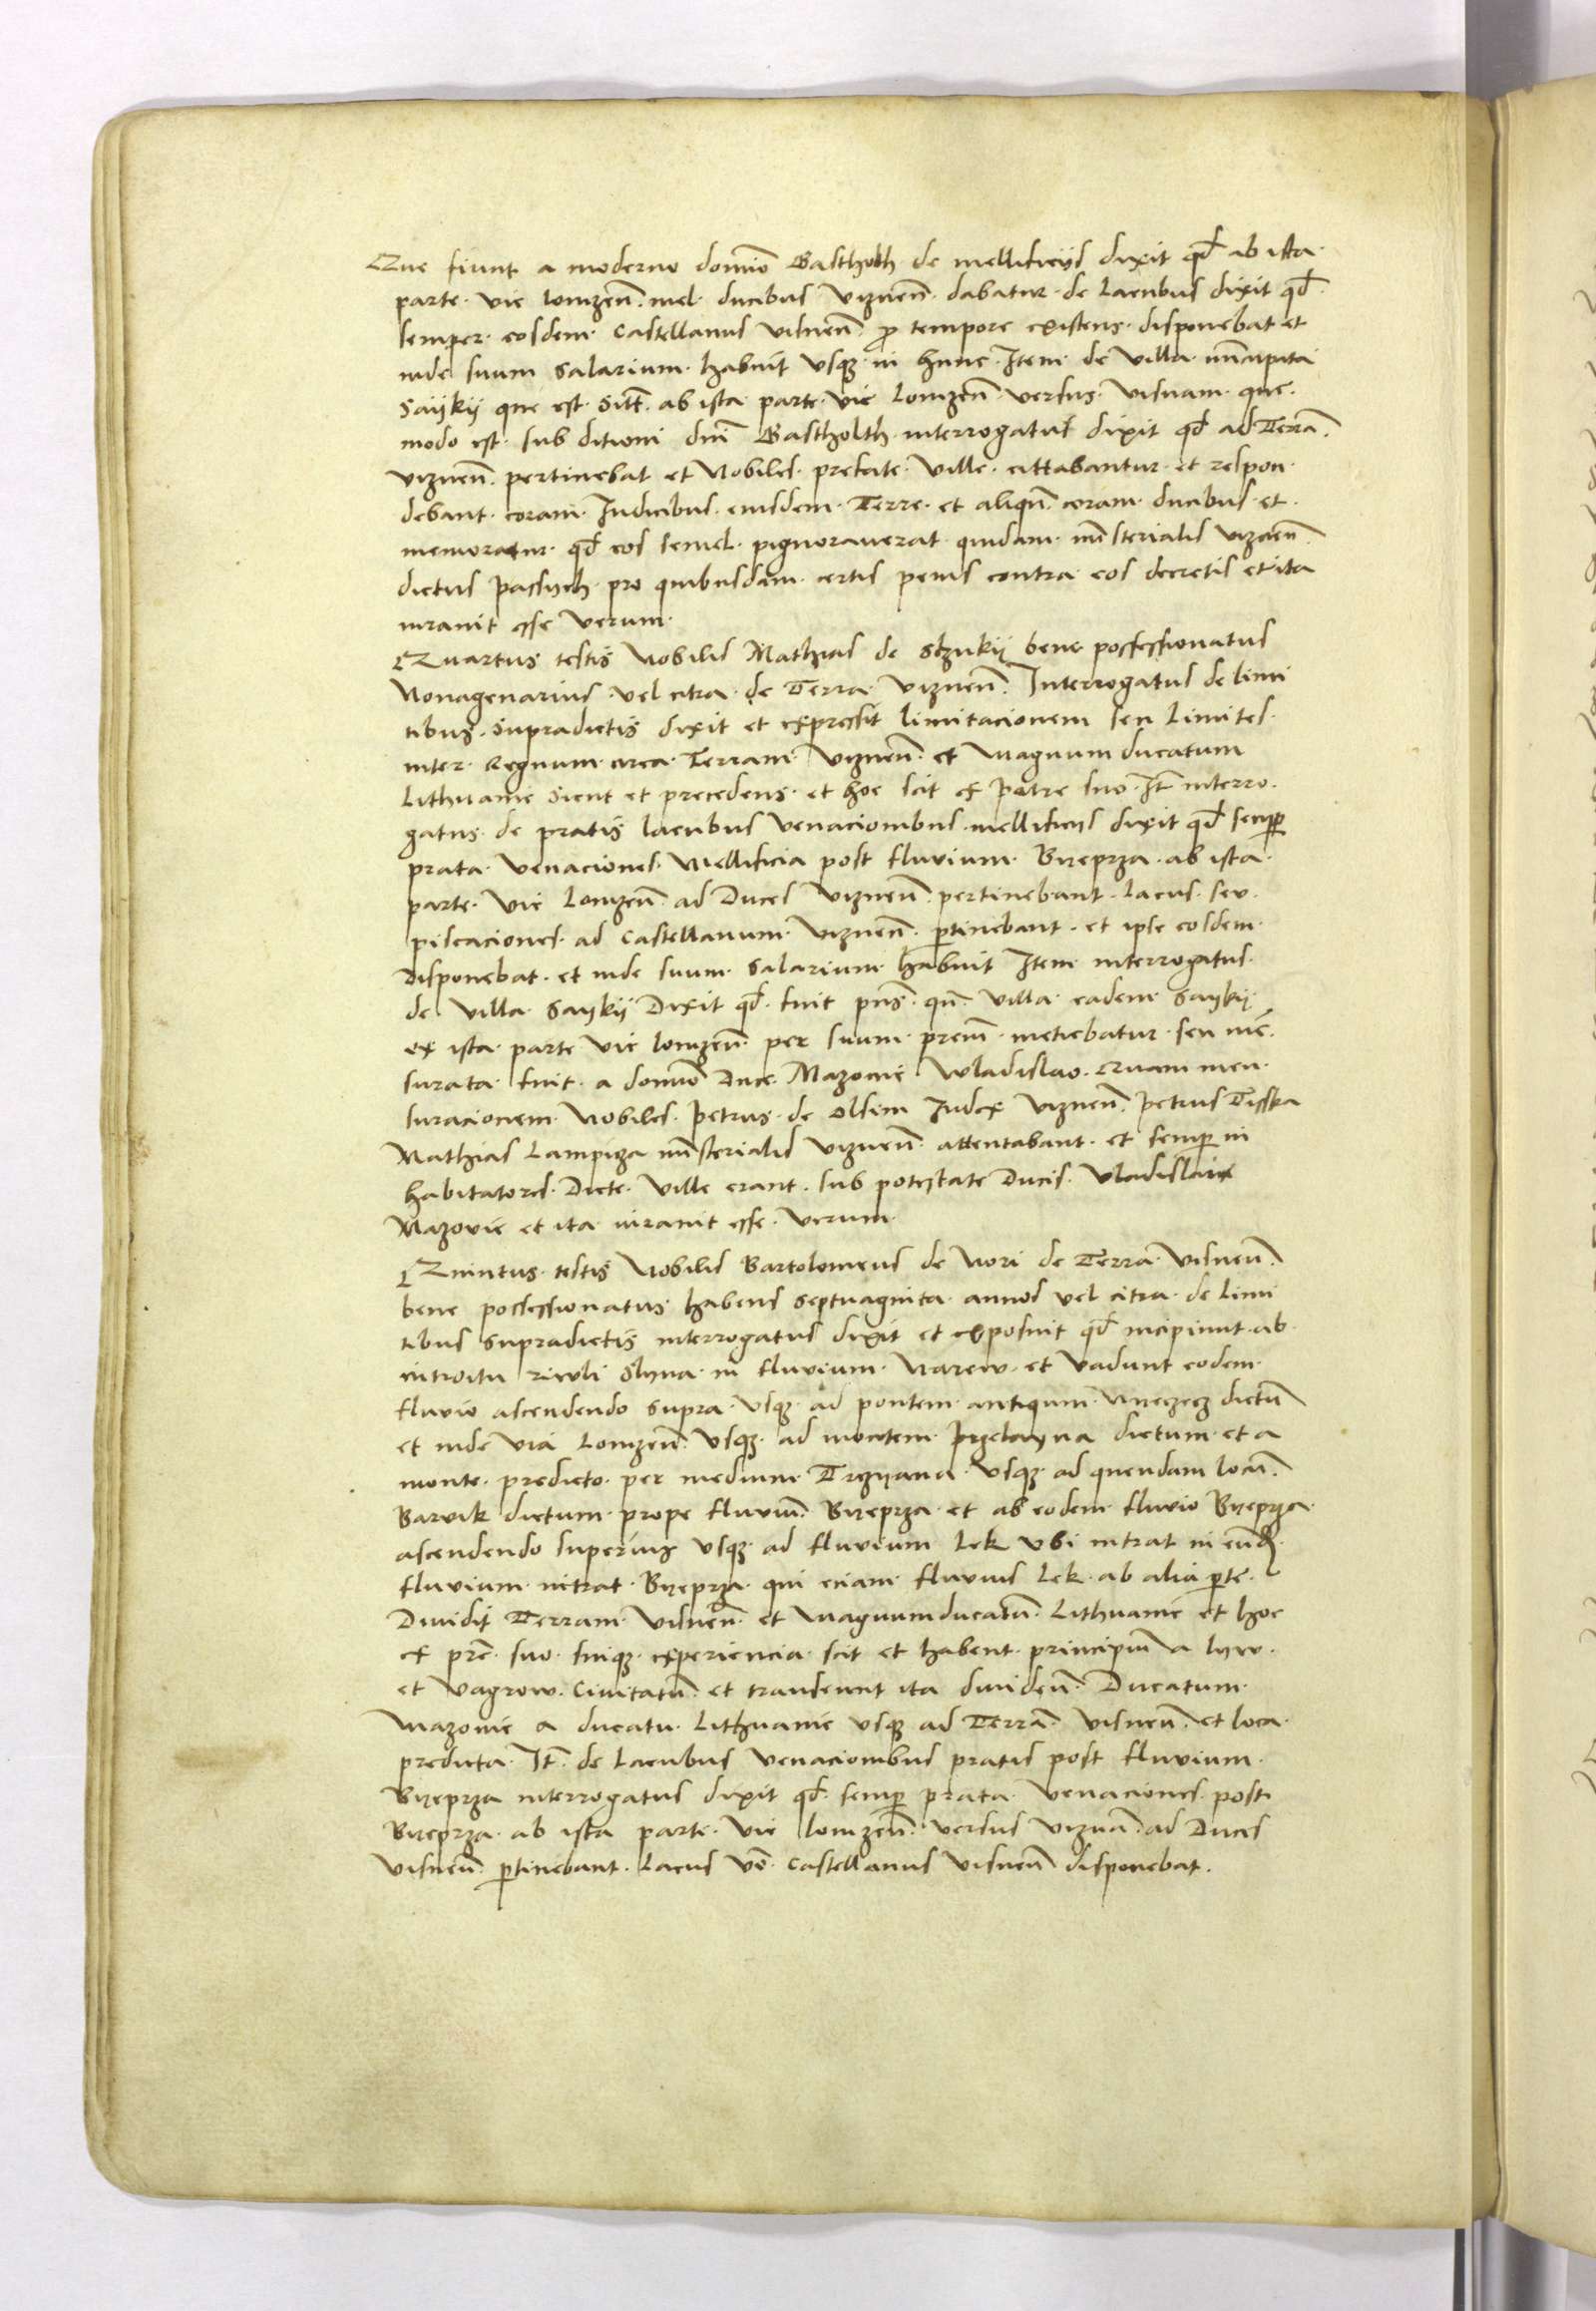 Que fiunt a moderno domīo Gastholth de mellificijs dixit qđ ab ista
parte vie lomzeñ. mel ducibus Vizneñ. dabatur de lacubus dixit qđ
semper eosdem Castellanus Visneñ. p̱ tempore existens disponebat et
inde suum salarium habuit vsqꝫ in hunc Item de villa nūcupata
Sayky que est sitī ab ista parte vie lomzeñ versus Visnam que
modo est sub ditioni dnī Gastholth interrogatus dixit qđ ad Terrā
vizneñ. pertinebat et Nobiles prefate ville cittabantur et respon
debant coram Iudicibus eiusdem Terre et aliqñ. coram ducibus et
memoratur qđ eos semel pignoraverat quidam mīsterialis vizneñ.
dictus pro quibusdam certis penis contra eos decretis et ita
iuravit esse verum
Quartus testis Nobilis Mathias de bene possessionatus
Nonagenarius vel citra de Terra Vizneñ. Interrogatus de limi
tibus supradictis dixit et expressit limitacionem seu limites
inter Regnum circa Terram Vizneñ. et Magnum ducatum
Lithuanie sicut et precedens et hoc scit ex patre suo It̄ interro
gatus de pratis lacubus venacionibus mellificijs dixit qđ semp̱
prata venaciones Mellificia post fluvium Byeprza ab ista
parte vie lomzeñ ad Duces Vizneñ. pertinebant lacus seu
piscaciones ad Castellanum Vizneñ. p̱tinebant et ipse eosdem
disponebat et inde suum salarium habuit Item interrogatus
de villa Sayky Dixit qđ fuit pn̄s qn̄ villa eadem Sayky
ex ista parte vie lomzeñ per suum prem̄ metiebatur seu mē
surata fuit a domīo Duce Mazovie Wladislao Quam men
suracionem Nobiles petrus de olsini Iudex Vizneñ. petrus
Mathias Lampiza mīsterialis Vizneñ attentabant et semp̱ in
habitatores Dicte ville erant sub potestate Ducis Vladislai
Mazovie et ita iuravit esse verum
Quintus testis Nobilis Bartolomeus de Nori de Terra Visneñ.
bene possessionatus habens septuaginta annos vel citra de limi
tibus supradictis interrogatus dixit et exposuit qđ incipiunt ab
introitu rivuli Slyna in fluvium Narew et vadunt eodem
fluvio ascendendo supra vsqꝫ ad pontem antiqum dictū
et inde via Lomzeñ. vsqꝫ ad montem dictum et a
monte predicto per medium vsqꝫ ad quendam locū
Barvik dictum prope fluviū Byeprza et ab eodem fluvio Byeprza
ascendendo superius vsqꝫ ad fluvium Lek vbi intrat in eundē
fluvium intrat Byeprza qui eciam fluvius Lek ab alia p̱te
Dividit Terram Visneñ et Magnumducatū Lithuanie et hoc
ex prē suo suiqꝫ experiencia scit et habent principiū a lyw
et Vagrow Civitatū et transeunt ita divideñ Ducatum
Mazovie a ducatu Lithuanie vsqꝫ ad Terrā Visneñ. et loca
predicta It̄ de lacubus venacionibus pratis post fluvium
Byeprza interrogatus dixit qđ semp̱ prata venaciones post
Byeprza ab ista parte vie lomzeñ versus Viznā ad Duces
Visneñ. p̱tinebant lacus vō Castellanus Visneñ disponebat.